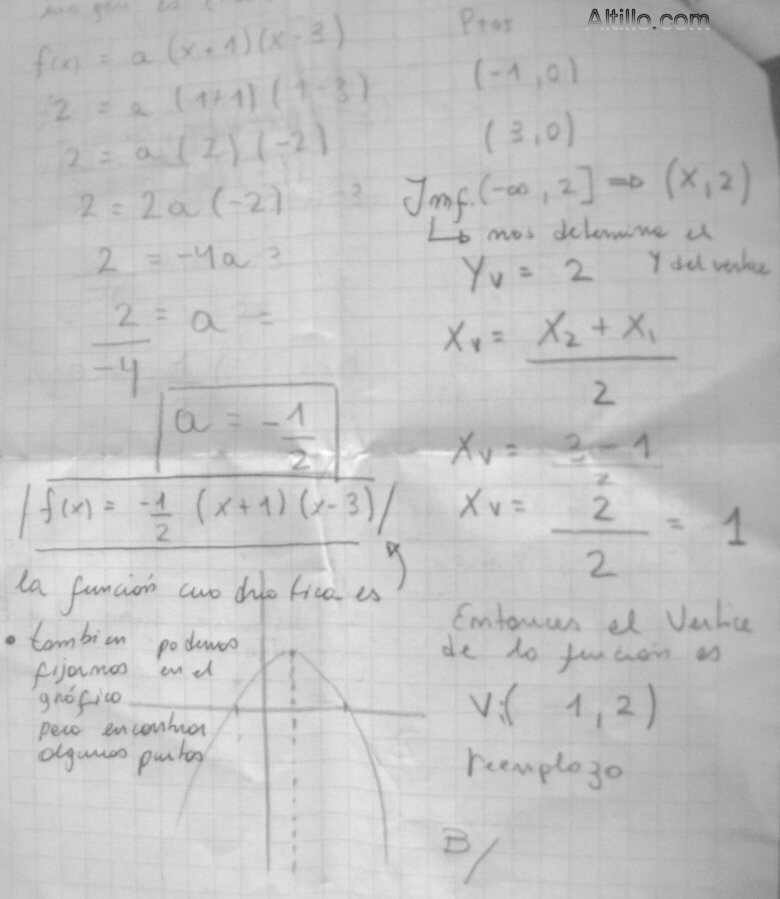 Altillo.com
f(x) = a (x+1)(x-3)
2 = a (1+1)(1-3)
2 = a (2)(-2)
2 = 2a (-2)
2 = -4a
2/-4 = a =
a = -1/2
f(x) = -1/2 (x+1)(x-3)
la función cuadratica es
• tambien podemos
fijarnos en el
gráfico
pero encontrar
algunos puntos
Ptos
(-1,0)
(3,0)
Imf. (-∞, 2] ⇒ (x, 2)
↳ nos determina el
Yv = 2 Y del vertice
Xv = X2 + X1 / 2
Xv = 3 - 1 / 2
Xv = 2/2 = 1
Entonces el Vertice
de la función es
V:( 1, 2)
reemplazo
B/